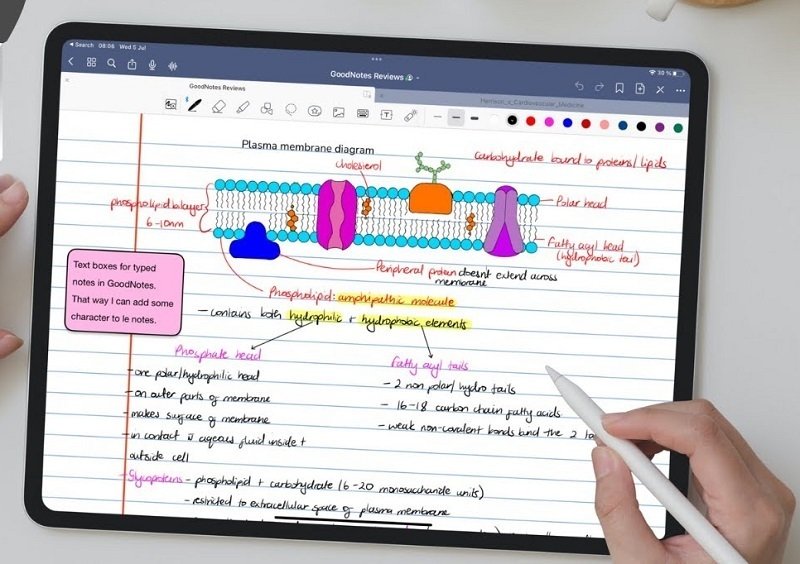 Search 08:08 Wed 5 Jul
30 %
GoodNotes Reviews
GoodNotes Reviews
Harrison_s_Cardiovascular_Medicine
Plasma membrane diagram
cholesterol
Carbohydrate bound to proteins/lipids
phospholipid bilayer
6-10nm
Polar head
Fatty acyl head
(hydrophobic tail)
Peripheral protein doesnt extend across
membrane
Text boxes for typed
notes in GoodNotes.
That way I can add some
character to le notes.
Phospholipid: amphipathic molecule
- contains both hydrophilic + hydrophobic elements
Phosphate head
- one polar/hydrophilic head
- on outer parts of membrane
- makes surface of membrane
- in contact w aqeous fluid inside +
outside cell
Fatty acyl tails
- 2 non polar/hydro tails
- 16-18 carbon chain fatty acids
- weak non-covalent bonds bind the 2
Glycoproteins - phospholipid + carbohydrate (6-20 monosaccharide units)
- restricted to extracellular space of plasma membrane